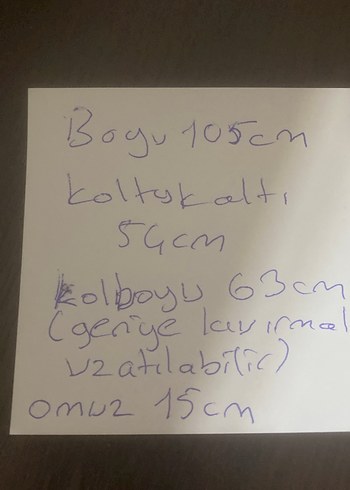 Boyu 105cm
koltukaltı
54cm
kolboyu 63cm
(geriye
uzatılabilir)
omuz 15cm